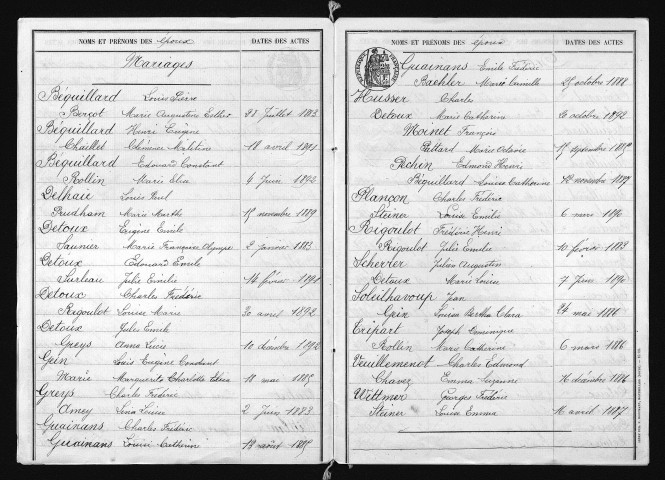 NOMS ET PRÉNOMS DES époux DATES DES ACTES
Mariages
Béguillard Louis Pierre
Berçot Marie Augustine Esther 28 Juillet 1883
Béguillard Henri Eugène
Chaillet Clémence 18 avril 1891
Béguillard Edouard Constant
Rollin Marie Elise 4 Juin 1892
Delhaie Louis Paul
Prudham Marie Marthe 15 novembre 1889
Detoux Eugène Emile
Saunier Marie Françoise Olympe 2 janvier 1883
Detoux Edouard Emile
Surleau Julie Emilie 14 février 1891
Detoux Charles Frédéric
Rigoulot Louise Marie 30 avril 1892
Detoux Jules Emile
Greys Anna Lucie 10 décembre 1892
Gein Louis Eugène Constant
Marie Marguerite Charlotte 18 mai 1885
Greys Charles Frédéric
Amey Lina Louise 2 Juin 1883
Guainans Charles Frédéric
Guainans Louise Catherine 13 août 1885
NOMS ET PRÉNOMS DES époux DATES DES ACTES
Guainans Emile Frédéric
Raehler Marie Camille 27 octobre 1888
Husser Charles
Detoux Marie Catherine 6 octobre 1892
Moinet François
Pattard Marie Octavie 17 septembre 1885
Péchin Edmond Henri
Béguillard Louise Catherine 12 novembre 1887
Plançon Charles Frédéric
Steiner Louise Emilie 6 mars 1890
Rigoulot Frédéric Henri
Rigoulot Julie Emilie 10 février 1883
Scherrer Julien Augustin
Detoux Marie Louise 7 Juin 1890
Soleilhavoup Jean
Grix Louisa Bertha Clara 24 mai 1886
Tripart Joseph Dominique
Rollin Marie Catherine 6 mars 1886
Veuillemenot Charles Edmond
Chavez Emma Suzanne 16 décembre 1886
Wittmer Georges Frédéric
Steiner Louise Emma 16 avril 1887